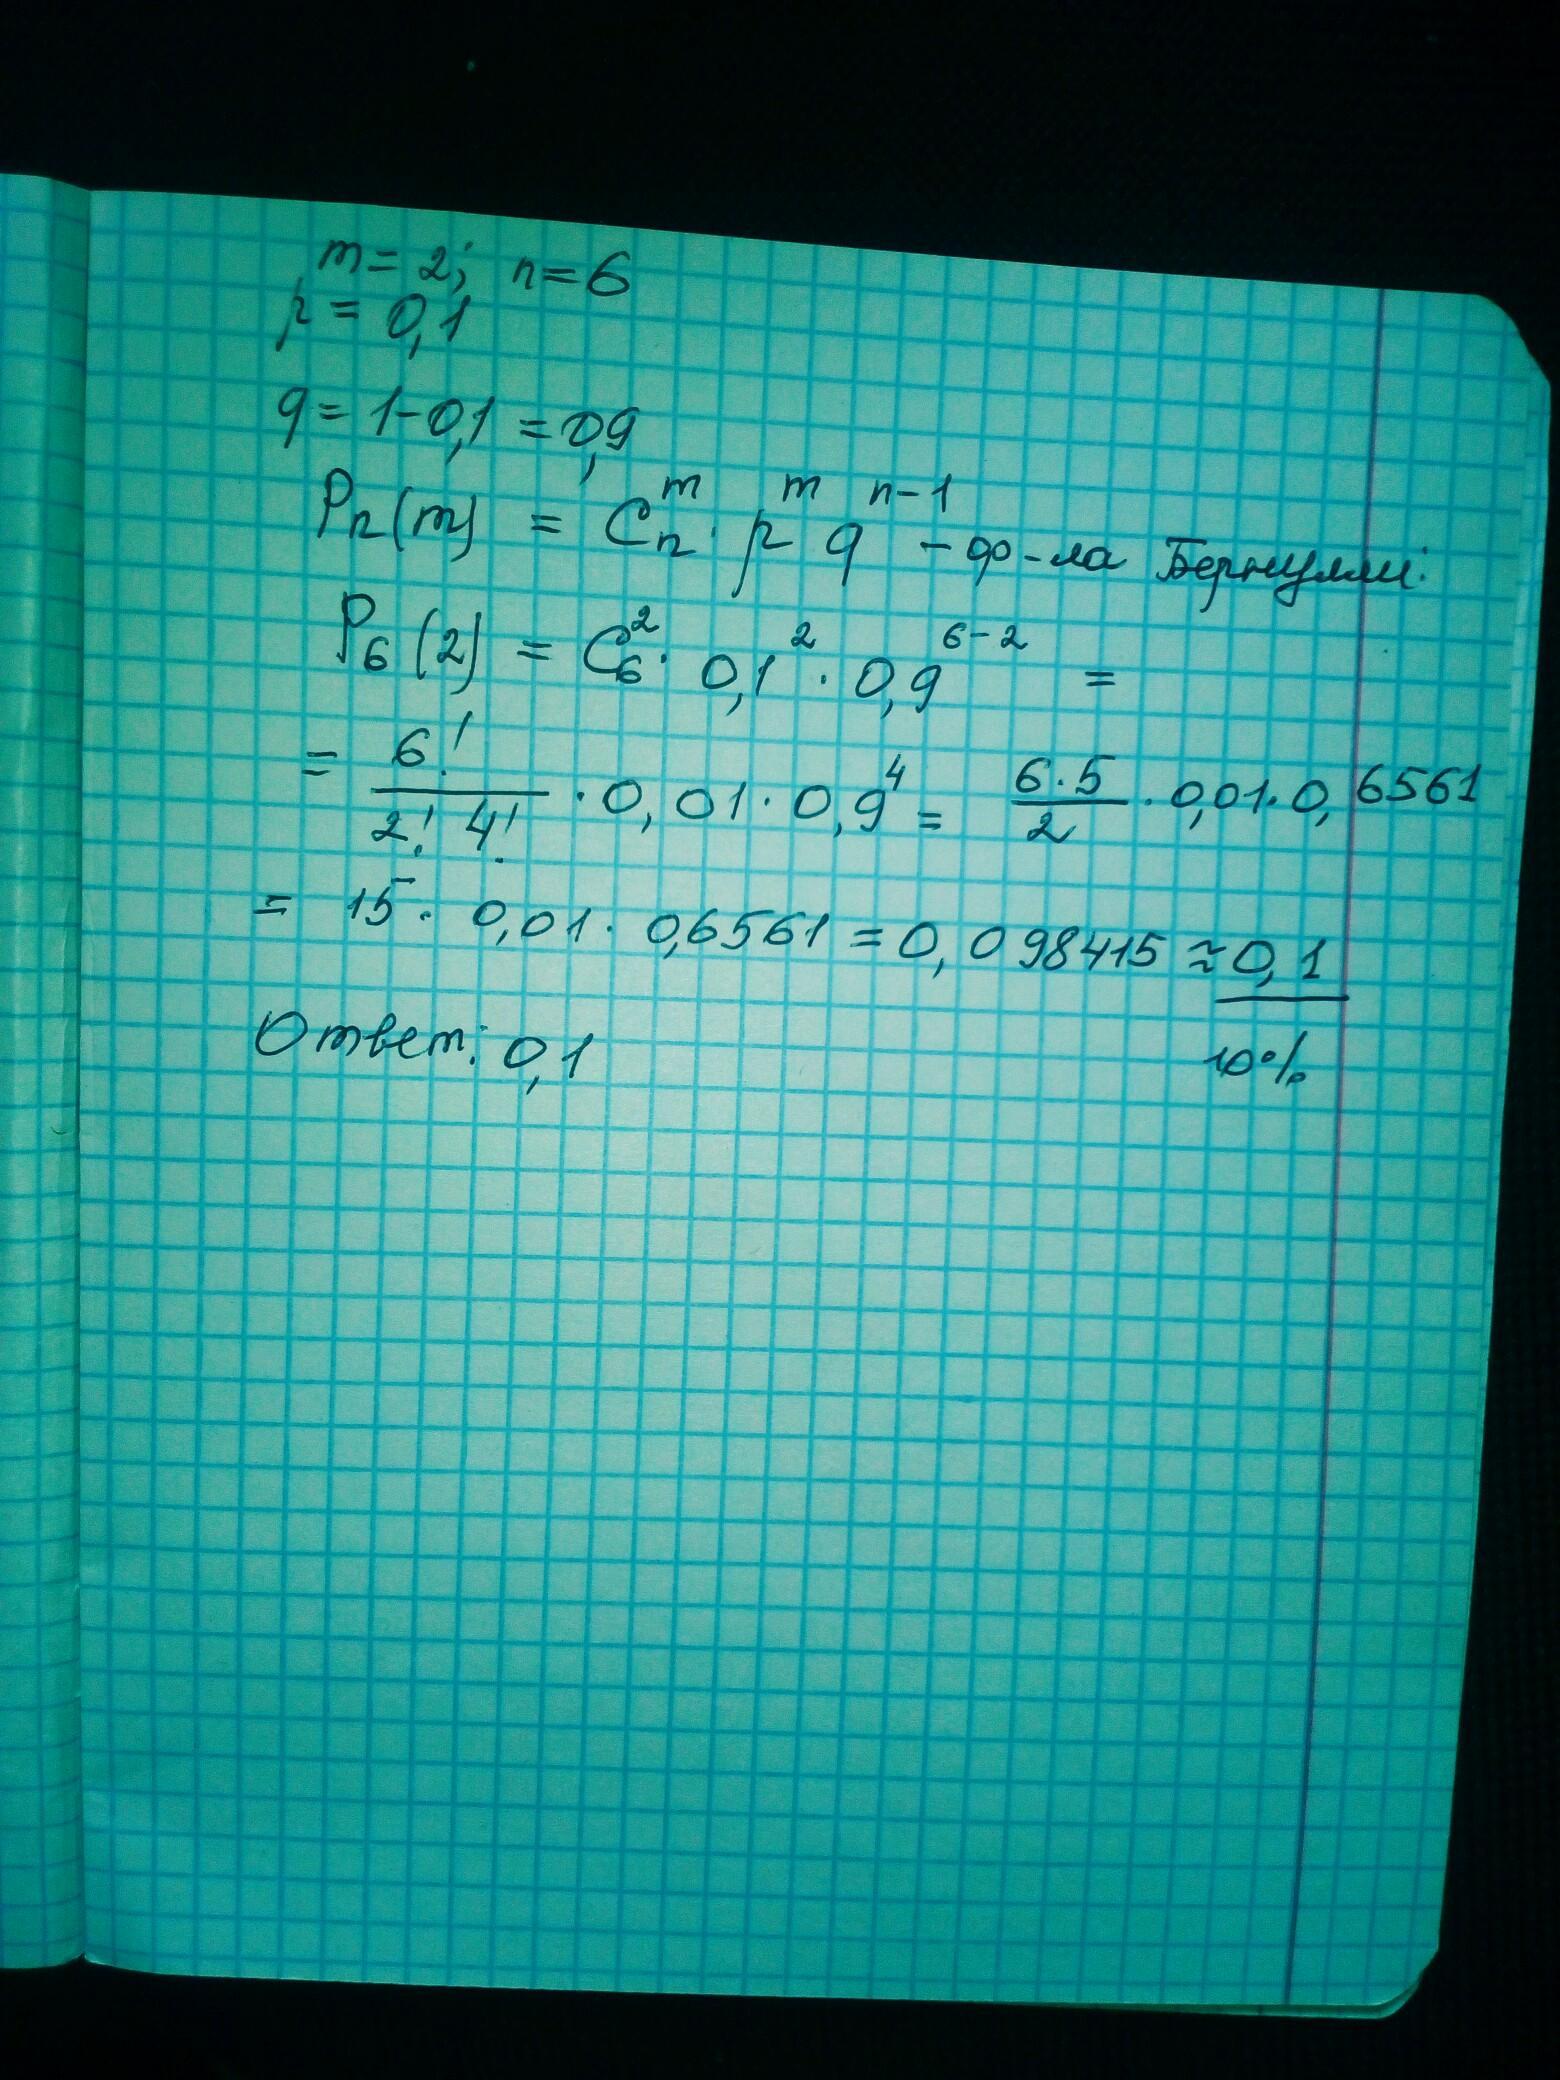 m = 2; n = 6
p = 0,1
q = 1 - 0,1 = 0,9
Pn(m) = Cₙᵐ · pᵐ qⁿ⁻¹ - ф-ла Бернулли:
P₆(2) = C₆² · 0,1² · 0,9⁶⁻² =
= 6!/(2! 4!) · 0,01 · 0,9⁴ = (6·5)/2 · 0,01 · 0,6561
= 15 · 0,01 · 0,6561 = 0,098415 ≈ 0,1
10%
Ответ: 0,1